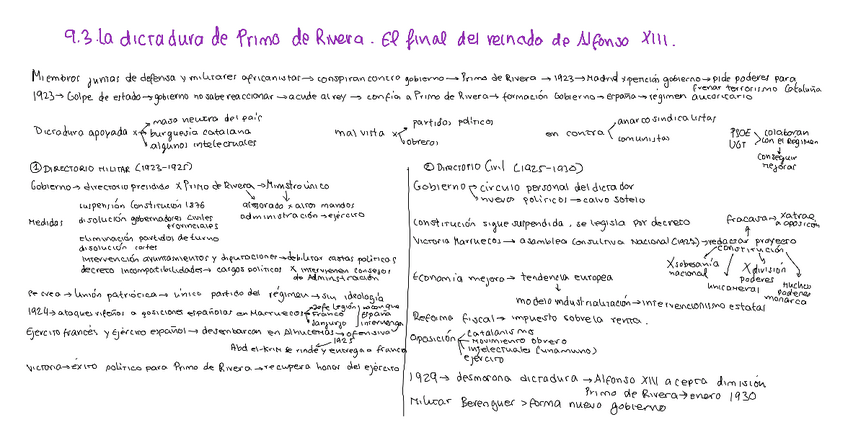 9.3. La dictadura de Primo de Rivera. El final del reinado de Alfonso XIII.
Miembros juntas de defensa y militares africanistas → conspiran contra gobierno → Primo de Rivera → 1923 → Madrid xpención gobierno → pide poderes para
frenar terrorismo Cataluña
1923 → Golpe de estado → gobierno no sabe reaccionar → acude al rey → confía a Primo de Rivera → formación Gobierno → españa → régimen autoritario
Dictadura apoyada x
masa neutra del país
burguesia catalana
algunos intelectuales
mal vista x
partidos políticos
obreros
en contra
anarcosindicalistas
comunistas
PSOE
UGT
colaboran
con el Régimen
conseguir
mejoras
① DIRECTORIO MILITAR (1923-1925)
Gobierno → directorio presidido x Primo de Rivera → Ministro único
asesorado x altos mandos
administración → ejército
Medidas
suspensión Constitución 1876
disolución gobernadores civiles
provinciales
eliminación partidos de turno
disolución cortes
intervención ayuntamientos y diputaciones → debilitar castas políticas
decreto incompatibilidades → cargos políticos x intervienen consejos
de Administración
se crea → Unión patriótica → único partido del régimen → sin ideología
1924 → ataques rifeños a posiciones españolas en Marruecos
Jefe Legión
Franco
Sanjurjo
España
intervenga
Ejército francés y Ejército español → desembarcan en Alhucemas → ofensiva
1925
Abd el-Krim se rinde y entrega a francia
Victoria → éxito político para Primo de Rivera → recupera honor del ejército
② DIRECTORIO Civil (1925-1930)
Gobierno
círculo personal del dictador
nuevos políticos → calvo sotelo
Constitución sigue suspendida, se legisla por decreto
fracasa → x atrae
a oposición
Victoria Marruecos → asamblea Consultiva Nacional → redactar proyecto
constitución
X soberanía
nacional
unicameral
X división
poderes
mucho
poderes
monarca
Economía mejora → tendencia europea
modelo industrialización → intervencionismo estatal
Reforma fiscal → impuesto sobre la renta.
Oposición
catalanismo
movimiento obrero
intelectuales (unamuno)
ejército
1929 → desmorona dictadura → Alfonso XIII acepta dimisión
Primo de Rivera → enero 1930
Militar Berenguer > forma nuevo gobierno